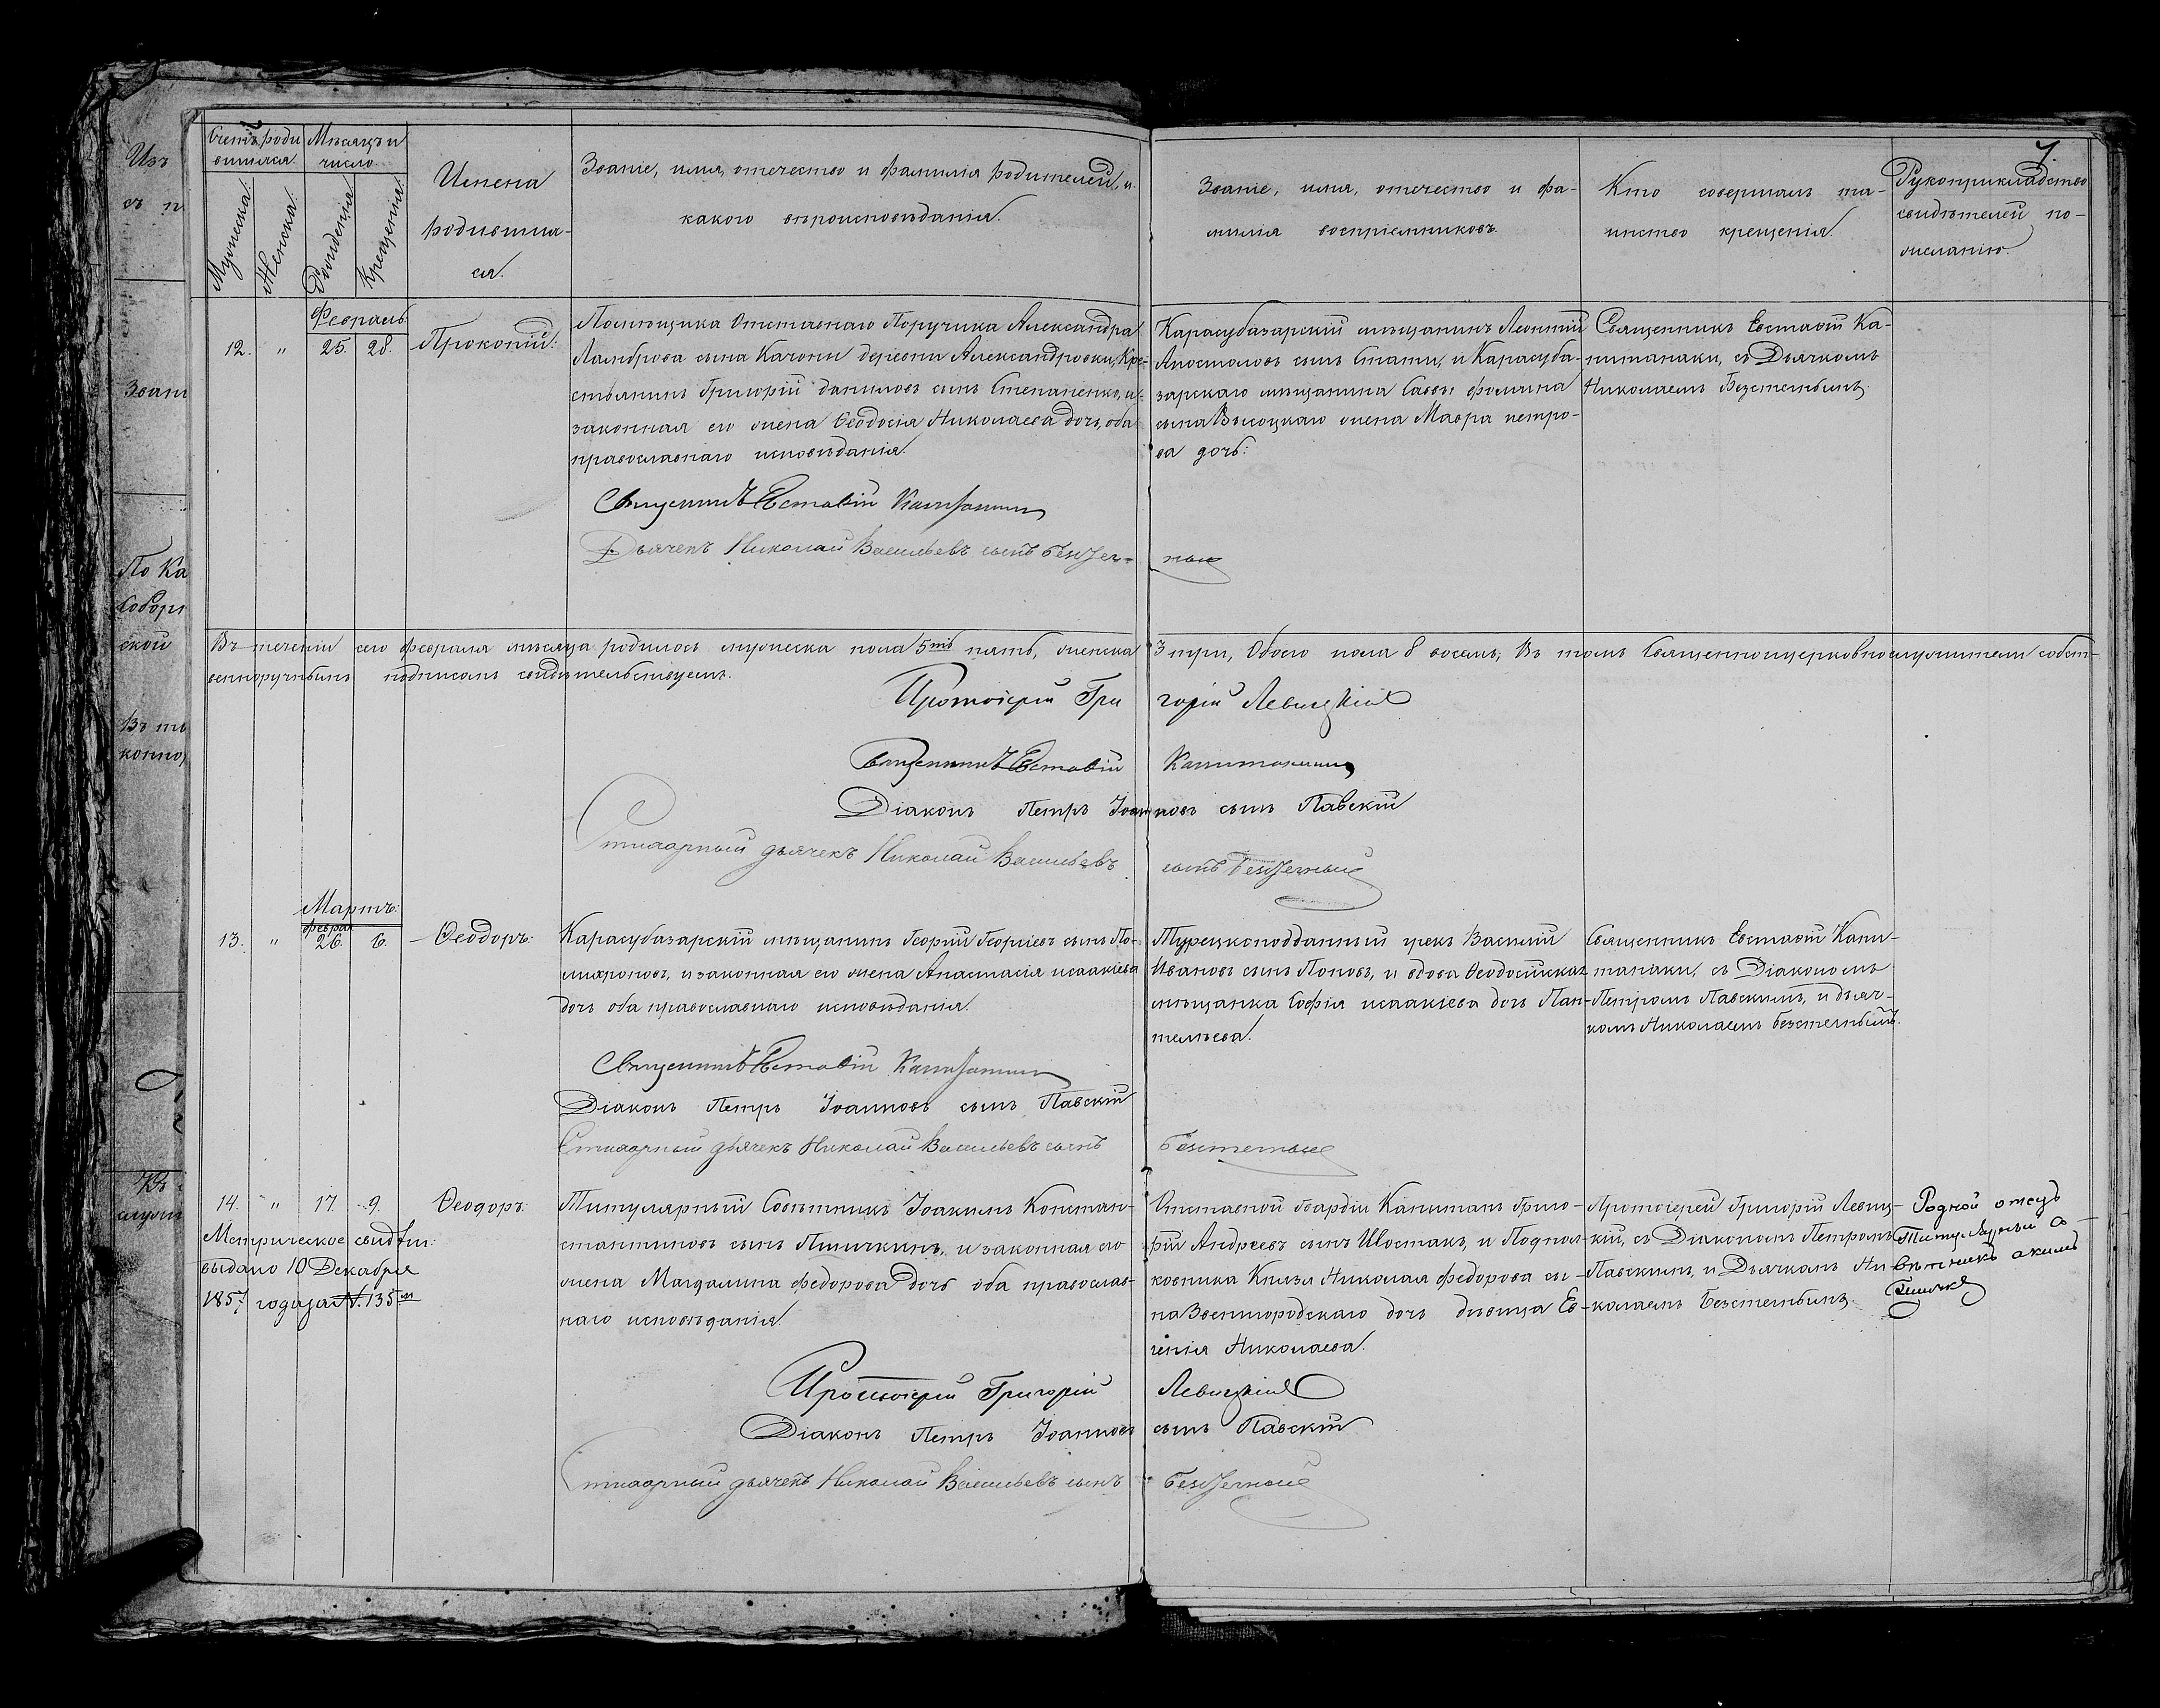 7.
Счетъ роди
вшихся.
Мѣсяцъ и
число.
Мужеска.
Женска.
Рожденія.
Крещенія.
Имена
родивших-
ся.
Званіе, имя, отечество и фамилія родителей, и
какого вѣроисповѣданія.
Званіе, имя, отечество и фа-
милія воспріемниковъ.
Кто совершалъ та-
инство крещенія.
Рукоприкладство
свидѣтелей по-
желанію.
Февраль.
12. " 25. 28. Прокопій:
Помѣщика Отставнаго Поручика Александра
Ламброва сына Качони деревни Александровки, Кре-
стьянинъ Григорій Даниловъ сынъ Степаненко, и
законная его жена Ѳеодосія Николаева дочь, оба
православнаго исповѣданія.
Карасубазарскій мѣщанинъ Леонтій
Апостоловъ сынъ Стати, и Карасуба-
зарскаго мѣщанина Саввы Фомина
сына Высоцкаго жена Мавра петро-
ва дочь:
Священникъ Евстаѳій Ка-
питанаки, съ Дьячкомъ
Николаемъ Безстетнымъ.
Священникъ Евстаѳій Капитанаки
Дьячекъ Николай Васильевъ сынъ Безстет-
ный
Въ теченіи сего февраля мѣсяца родилось мужеска пола 5ть пять, женска 3 три, Обоего пола 8 восемь; Въ томъ Священноцерковнослужители собст-
венноручнымъ подписомъ свидѣтельствуемъ.
Протоіерей Григорій Левицкій
Священникъ Евстаѳій Капитанаки
Діаконъ Петръ Іоанновъ сынъ Павскій
Стихарный дьячекъ Николай Васильевъ сынъ Безстетный
Мартъ:
Феврал
13. " 26. 6. Ѳеодоръ:
Карасубазарскій мѣщанинъ Георгій Георгіевъ сынъ По-
лихроновъ, и законная его жена Анастасія исаакіева
дочь оба православнаго исповѣданія.
Турецкоподданный грекъ Василій
Ивановъ сынъ Поповъ, и вдова Ѳеодосійская
мѣщанка Софія исаакіева дочь Пан-
телѣева.
Священникъ Евстаѳій Капи-
танаки, съ Діакономъ
Петромъ Павскимъ, и дьяч-
комъ Николаемъ Безстетнымъ.
Священникъ Евстаѳій Капитанаки
Діаконъ Петръ Іоанновъ сынъ Павскій
Стихарный дьячекъ Николай Васильевъ сынъ Безстетный
14. " 17. 9. Ѳеодоръ:
Метрическое свидѣт:
выдано 10 Декабря
1857 года за №. 135м
Титулярный Совѣтникъ Іоакимъ Констан-
стантиновъ сынъ Пшичкинъ, и законная его
жена Магдалина Федорова дочь оба православ-
наго исповѣданія.
Отставной Гвардіи Капитанъ Григо-
рій Андреевъ сынъ Шостакъ, и Подпол-
ковника Князя Николая Федорова сы-
на Звенигородскаго дочь дѣвица Ев-
генія Николаева.
Протоіерей Григорій Левиц-
кій, съ Діакономъ Петромъ
Павскимъ, и Дьячкомъ Ни-
колаемъ Безстетнымъ.
Родной отецъ
Титулярный Со-
вѣтникъ Акимъ
Протоіерей Григорій Левицкій
Діаконъ Петръ Іоанновъ сынъ Павскій
Стихарный дьячекъ Николай Васильевъ сынъ Безстетный
Изъ
Зван
По Ка
Собор
ской
конно